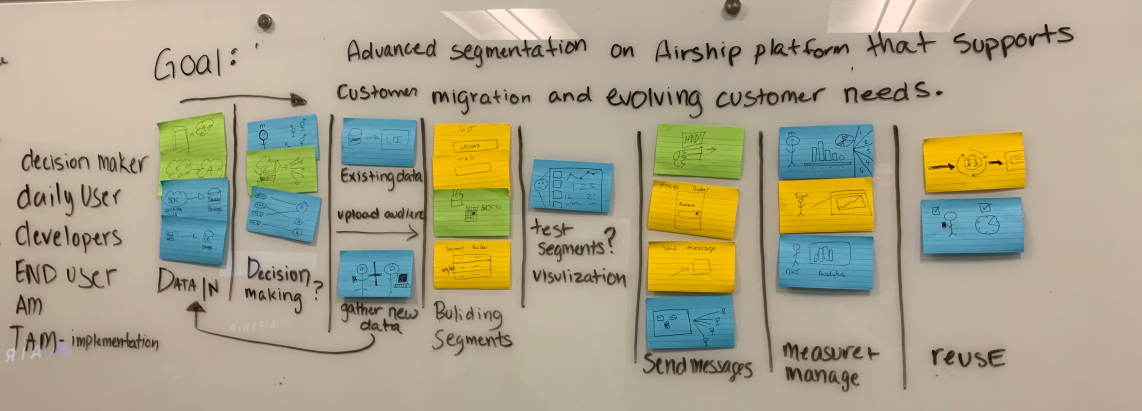 Goal:
Advanced segmentation on Airship platform that supports
customer migration and evolving customer needs.
decision maker
daily User
developers
END USER
AM
TAM- implementation
DATA IN
Decision making?
Existing data
upload audience
gather new data
LIST
UPLOAD
TAG
Segment Builder
Buliding Segments
test segments?
visulization
Message
Audience
Send Message
Send messages
Analytics
measure +
manage
reuse